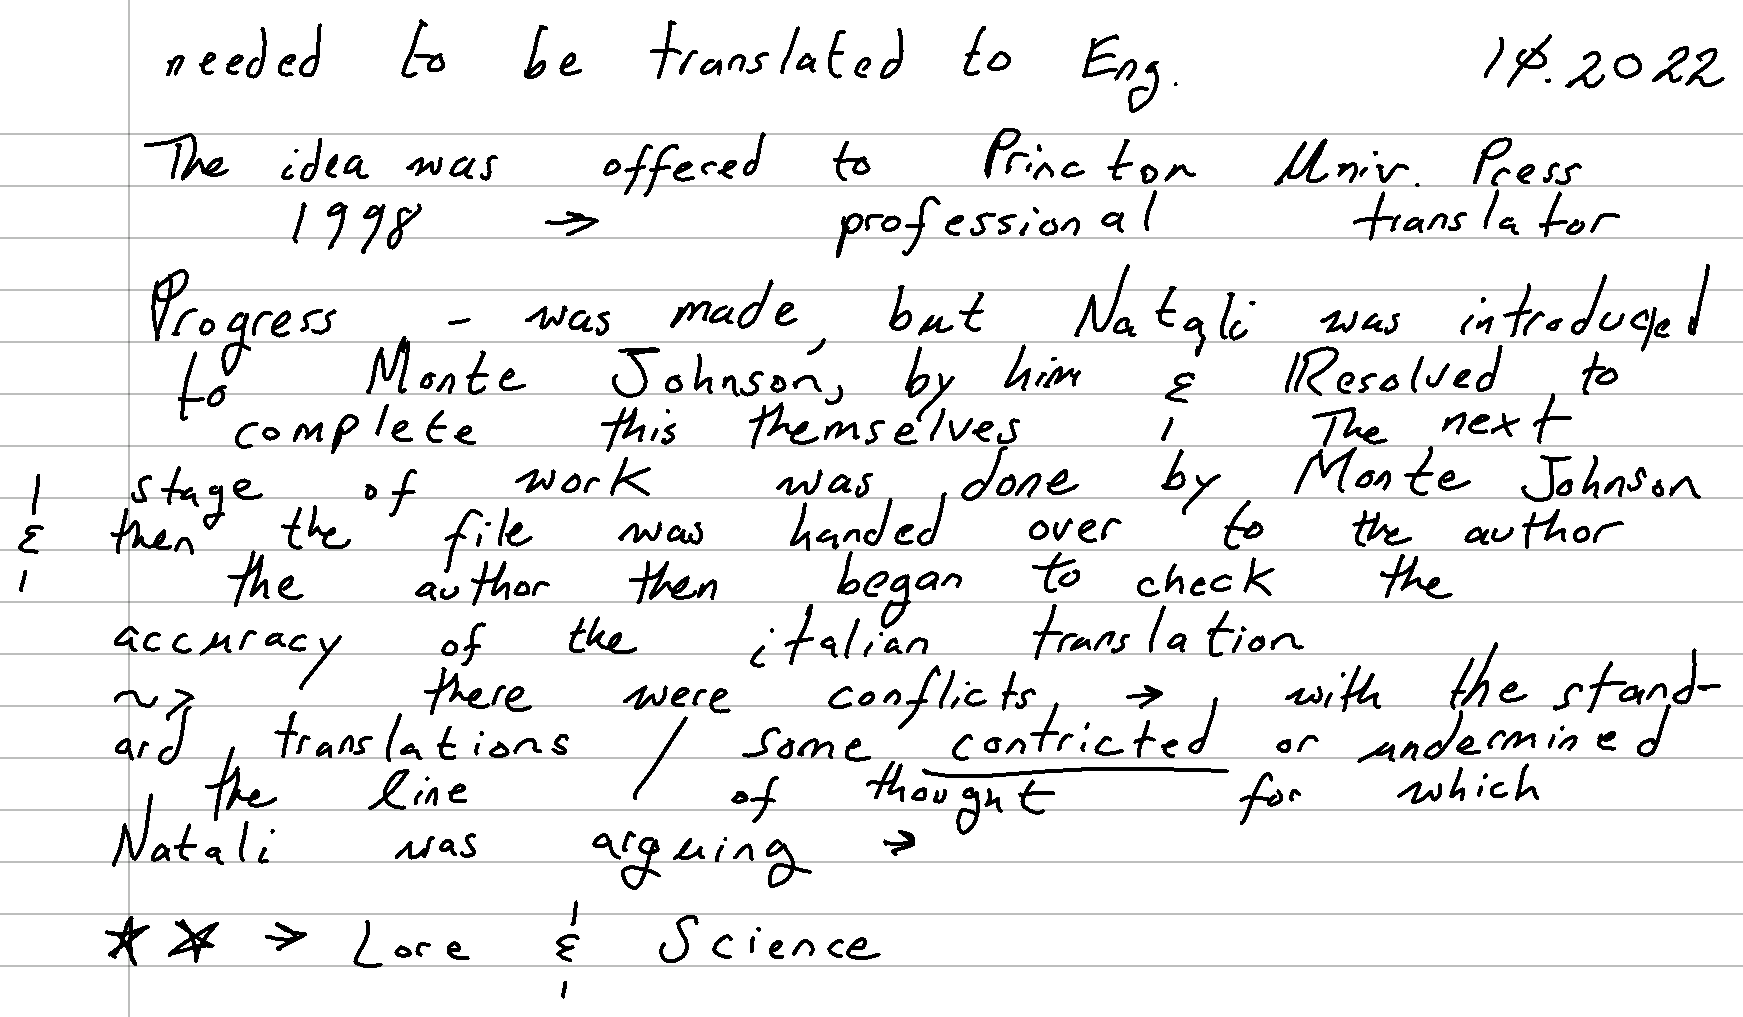 needed to be translated to Eng. 1ø.2022
The idea was offered to Princton Univ. Press
1998 → professional translator
Progress - was made, but Natali was introduced
to Monte Johnson, by him & Resolved to
complete this themselves The next
stage of work was done by Monte Johnson
& then the file was handed over to the author
the author then began to check the
accuracy of the italian translation
~> there were conflicts → with the stand-
ard translations / some contricted or undermined
the line of thought for which
Natali was arguing →
★★ → Lore & Science